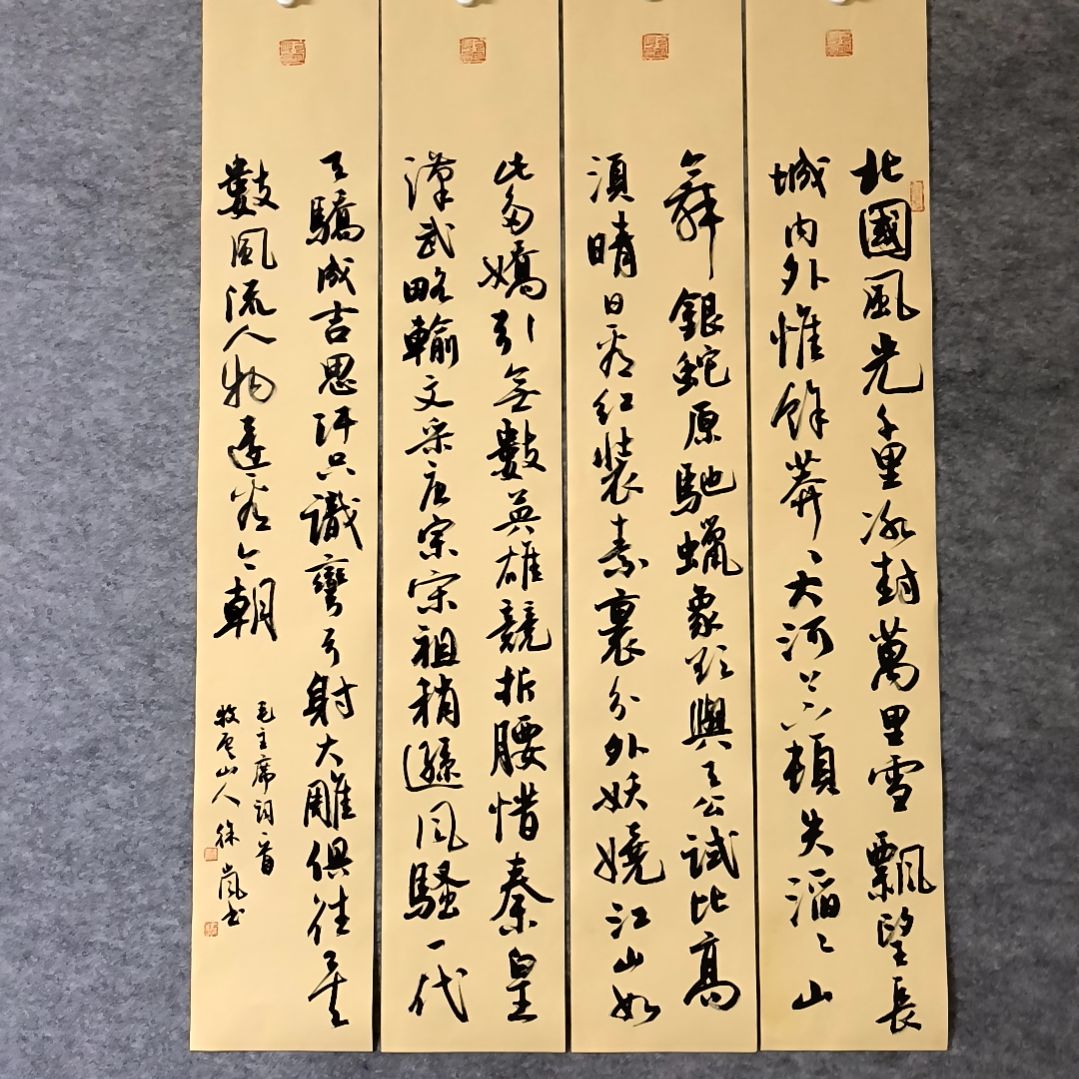 北國風光千里冰封萬里雪飄望長
城内外惟餘莽〻大河上下頓失滔〻山
舞銀蛇原馳蠟象欲與天公試比高
須晴日看红裝素裹分外妖嬈江山如
此多嬌引無數英雄競折腰惜秦皇
漢武略輸文采唐宗宋祖稍遜风騷一代
天驕成吉思汗只識彎弓射大雕俱往矣
數風流人物還看今朝
毛主席詞一首
牧雲山人徐嵐书